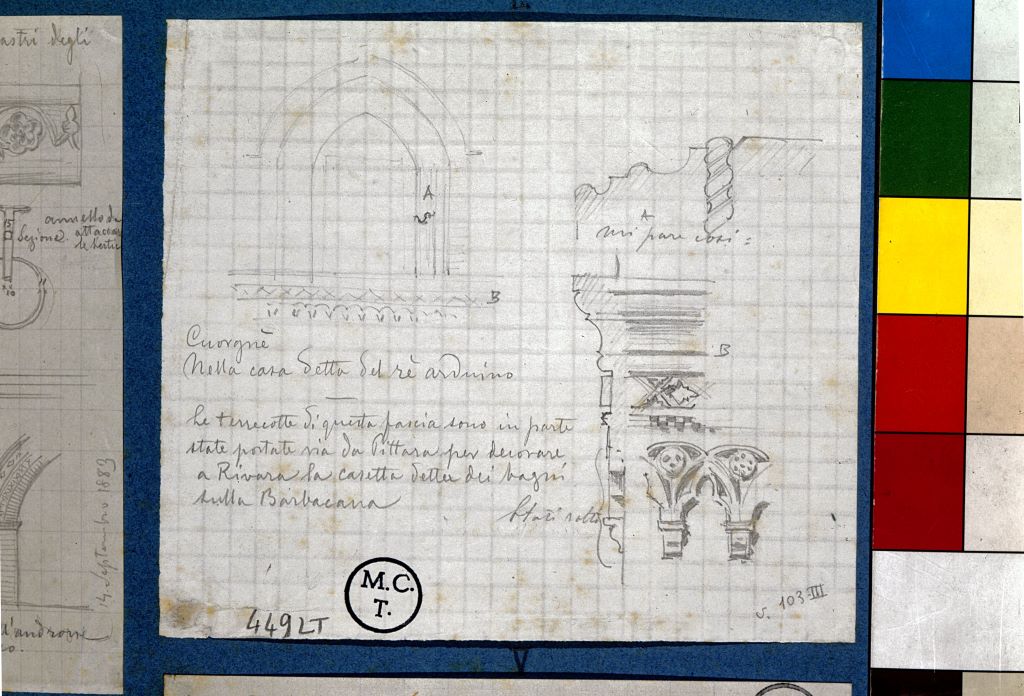 astri degli
annello da
attaccar
le bestie
Sezione
14 Septembre 1883
d'androne
A
B
Cuorgnè
Nella casa detta del rè arduino
Le terrecotte di questa fascia sono in parte
state portate via da Pittara per decorare
a Rivara la casetta detta dei bagni
sulla Barbacana
A
mi pare così =
B
rotto
M.C.
T.
449 LT
v. 103 III
V